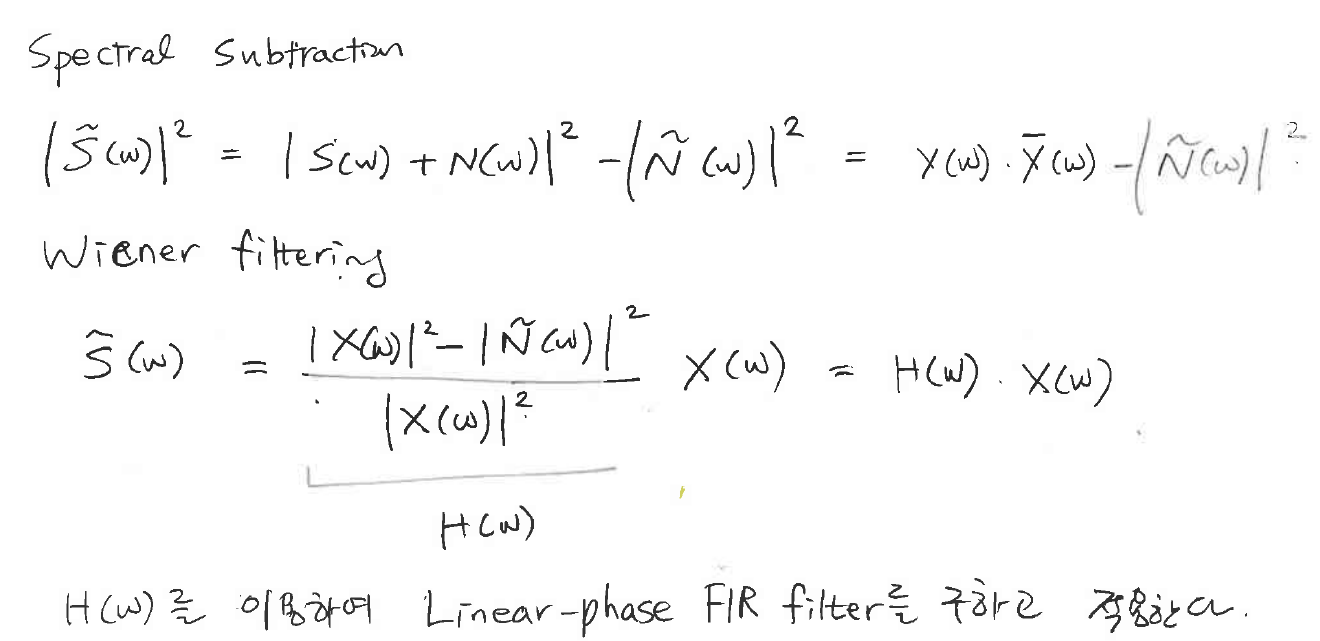 Spectral Subtraction
|S̃(ω)|² = |S(ω) + N(ω)|² - |Ñ(ω)|² = X(ω) · X̄(ω) - |Ñ(ω)|²
Wiener filtering
S̃(ω) = (|X(ω)|² - |Ñ(ω)|²) / |X(ω)|² X(ω) = H(ω) · X(ω)
H(ω)
H(ω)를 이용하여 Linear-phase FIR filter를 구하고 적용한다.